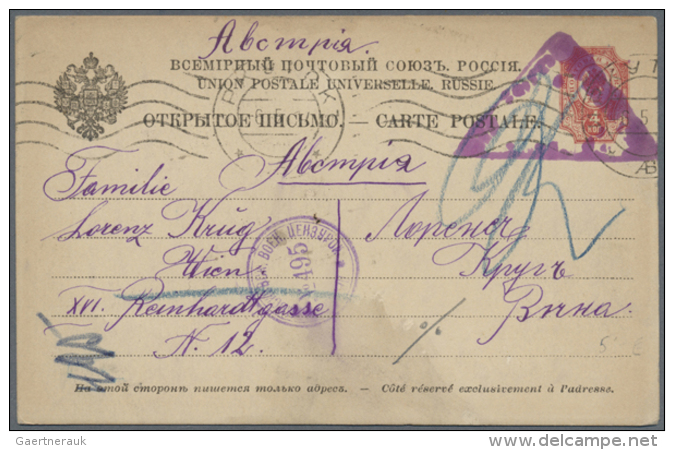 Австрія.
ВСЕМІРНЫЙ ПОЧТОВЫЙ СОЮЗЪ. РОССІЯ.
UNION POSTALE UNIVERSELLE. RUSSIE
ОТКРЫТОЕ ПИСЬМО. — CARTE POSTALE.
4 КОП
Австрія
Familie
Lorenz Krüg
Wien
XVI. Reinhardtgasse
N. 12.
Лоренсъ
Кругъ
Вѣна.
ВОЕН. ЦЕНЗУРОЮ
%
5 €
На этой сторонѣ пишется только адресъ. — Côté réservé exclusivement à l'adresse.
Gaertnerauk
www.delcampe.net